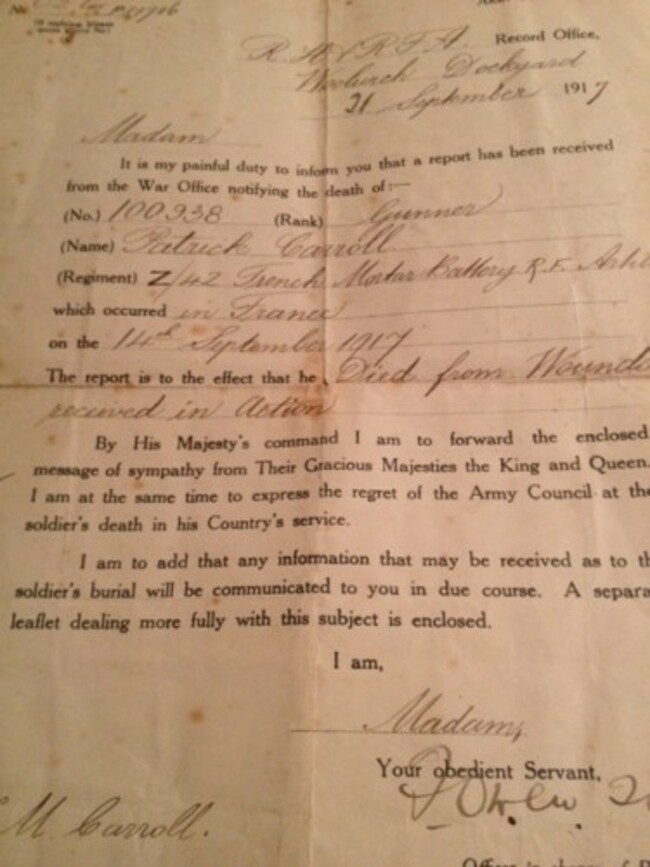 No.
(If replying please
quote above No.)
R.H. & R.F.A. Record Office,
Woolwich Dockyard
21 September 1917
Madam
It is my painful duty to inform you that a report has been received
from the War Office notifying the death of:—
(No.) 100938 (Rank) Gunner
(Name) Patrick Carroll
(Regiment) Z/42 Trench Mortar Battery R.F. Arti
which occurred in France
on the 14th September 1917
The report is to the effect that he Died from Wounds
received in Action
By His Majesty's command I am to forward the enclosed
message of sympathy from Their Gracious Majesties the King and Queen.
I am at the same time to express the regret of the Army Council at the
soldier's death in his Country's service.
I am to add that any information that may be received as to th
soldier's burial will be communicated to you in due course. A separa
leaflet dealing more fully with this subject is enclosed.
I am,
Madam,
Your obedient Servant,
M Carroll.